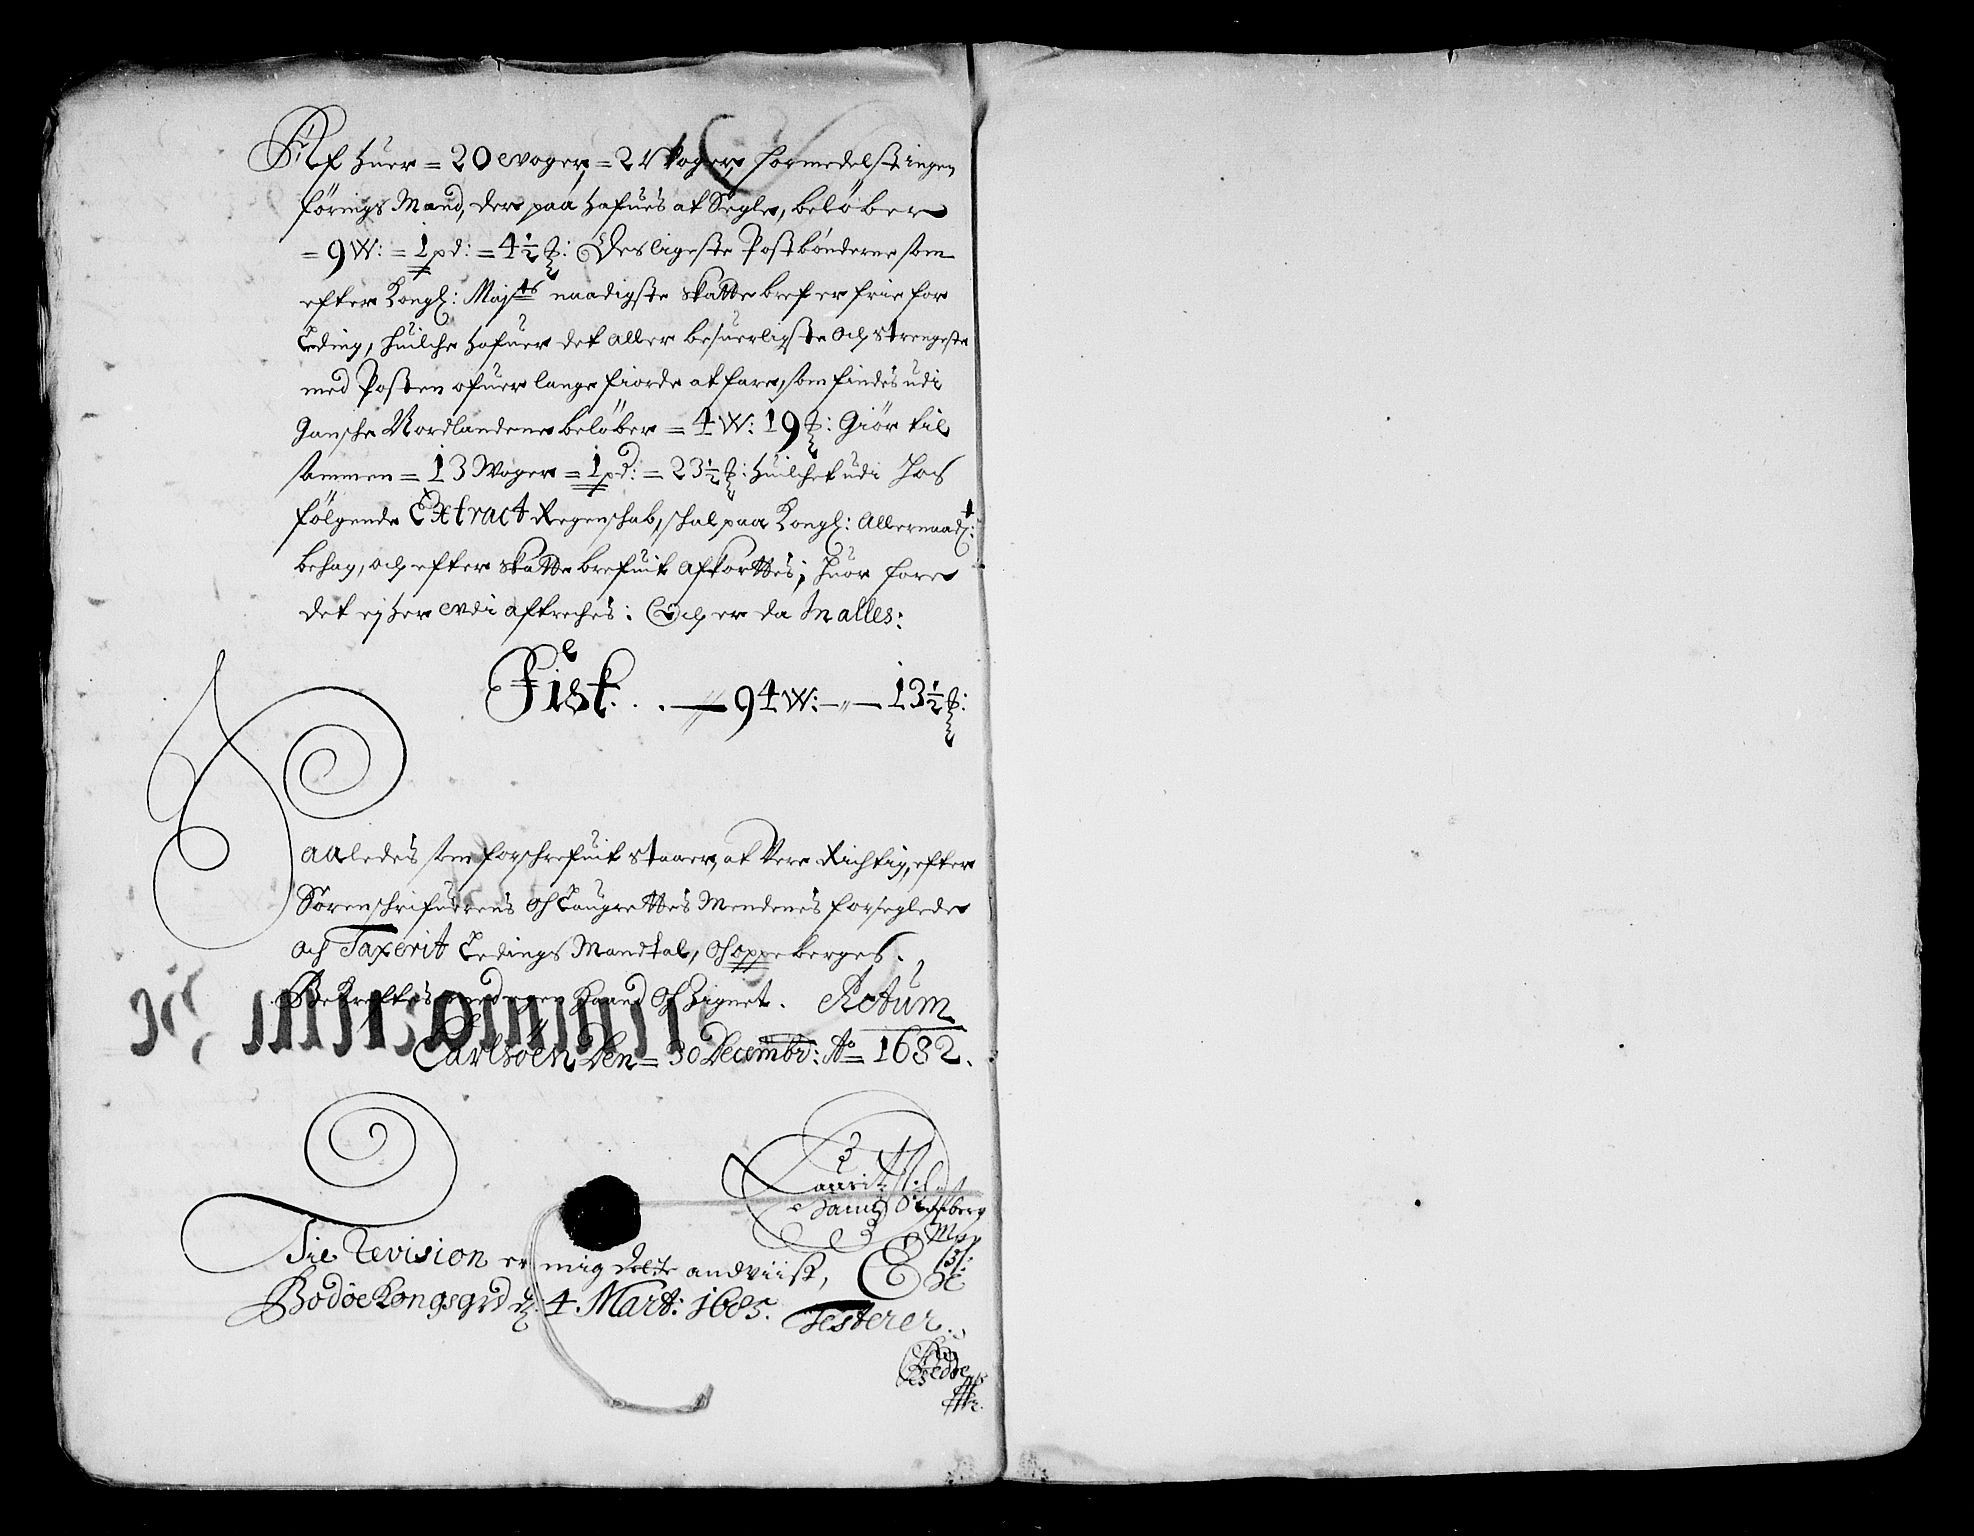 Af huer = 20 woger = 2 Woger, formedelst ingen
förings Mand, der paa hafues at Segle, belöber
= 9 W: = 1 pd: = 4½ ℔: Desligeste Postbönderne som
efter Kongl: Majts naadigste skatte bref er frie for
Leding, huilche hafuer det aller besuerligste och strengeste
med Posten ofuer lange fiorde at fare, som findes udi
Gansche Nordlandene belöber = 4 W: 19 ℔: Giör til
sammen = 13 Woger = 1 pd: = 23½ ℔: huilchet udi hos
fölgende Extract Regenschab, schal paa Kongl: Allernaadt:
behag, och efter skatte brefuit afkorttes; huor fore
det ej her wdi aftreches: Och er da In alles:
Fisk . . . — 94 W: — „ — 13½ ℔:
Saaledes som forschrefuit staaer, at Vere Richtig, efter
Sorenschrifuerens Och Laugrettes Mendenes forseglede
och Taxerit Ledings Mandtal, Och oppeberges.
Bekreftes med egen Haand Och Zignet. Actum
Carlsöen Den = 30 Decembr: Ao 1682.
Lauritz
Mpp
Til Revision er mig dette andviist,
Bodöe Kongsgrd d: 4 Mart: 1685. Testerer.